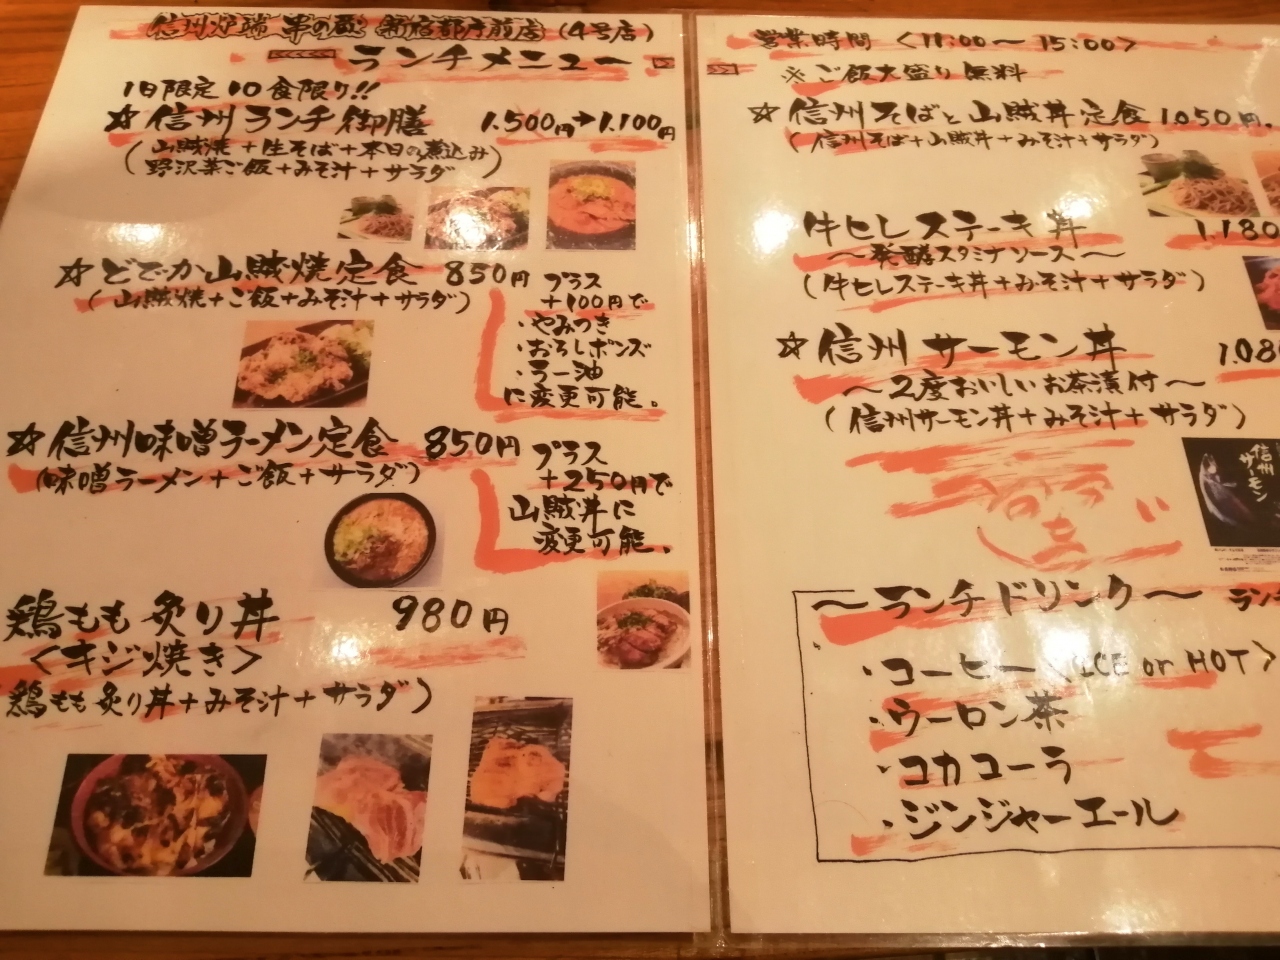 信州炉端 串の蔵 新宿都庁前店 (4号店)
ランチメニュー
1日限定10食限り!!
☆信州ランチ御膳 1.500円→1.100円
(山賊焼+生そば+本日の煮込み
野沢菜ご飯+みそ汁+サラダ)
☆どでか山賊焼定食 850円
(山賊焼+ご飯+みそ汁+サラダ)
プラス
+100円で
・やみつき
・おろしポンズ
・ラー油
に変更可能。
☆信州味噌ラーメン定食 850円
(味噌ラーメン+ご飯+サラダ)
プラス
+250円で
山賊丼に
変更可能。
鶏もも炙り丼 980円
<キジ焼き>
鶏もも炙り丼+みそ汁+サラダ)
営業時間 <11:00〜15:00>
※ご飯大盛り無料
☆信州そばと山賊丼定食 1.050円。
(信州そば+山賊丼+みそ汁+サラダ)
牛ヒレステーキ丼 1.180
〜発酵スタミナソース〜
(牛ヒレステーキ丼+みそ汁+サラダ)
☆信州サーモン丼 1.08
〜2度おいしいお茶漬付〜
(信州サーモン丼+みそ汁+サラダ)
信州
サーモン
〜ランチドリンク〜 ラン
・コーヒー<ICE or HOT>
・ウーロン茶
・コカコーラ
・ジンジャーエール